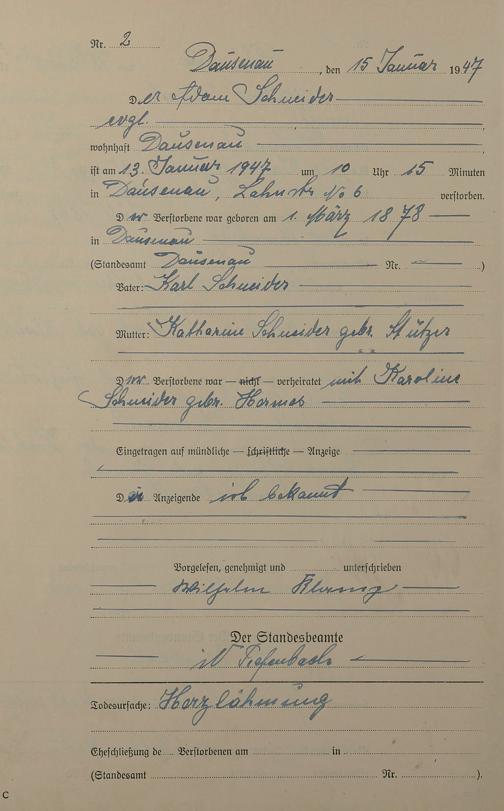 Nr. 2
Dausenau, den 15 Januar 1947
Der Adam Schneider
evgl.
wohnhaft Dausenau
ist am 13. Januar 1947 um 10 Uhr 15 Minuten
in Dausenau, Lahnstr No 6 verstorben.
Der Verstorbene war geboren am 1. März 1878
in Dausenau
(Standesamt Dausenau Nr. — )
Vater: Karl Schneider
Mutter: Katharine Schneider gebr. Stützer
Der Verstorbene war — nicht — verheiratet mit Karoline
Schneider gebr. Hermes
Eingetragen auf mündliche — schriftliche — Anzeige
D Anzeigende ist bekannt
Vorgelesen, genehmigt und unterschrieben
Wilhelm
Der Standesbeamte
iV Tiefenbach
Todesursache: Herzlähmung
Eheschließung de Verstorbenen am in
(Standesamt Nr. ).
C